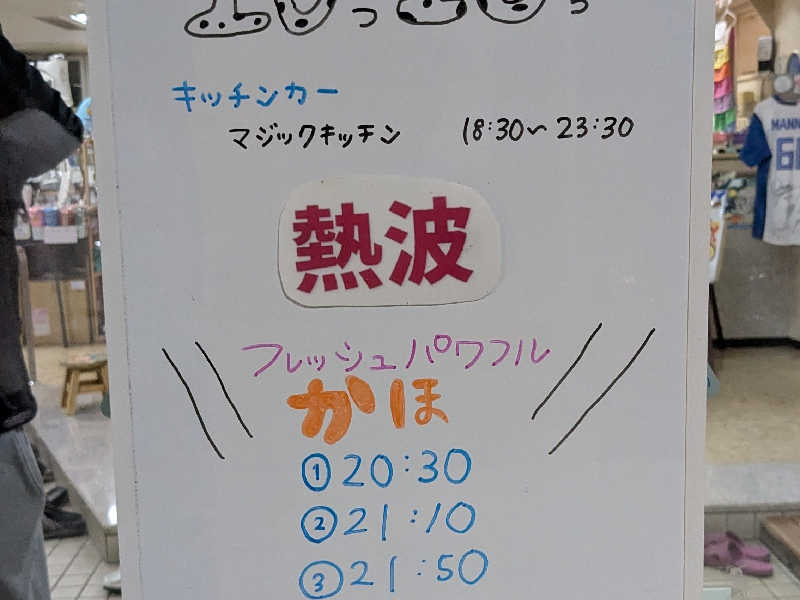 キッチンカー
マジックキッチン 18:30〜23:30
熱波
フレッシュパワフル
かほ
①20:30
②21:10
③21:50